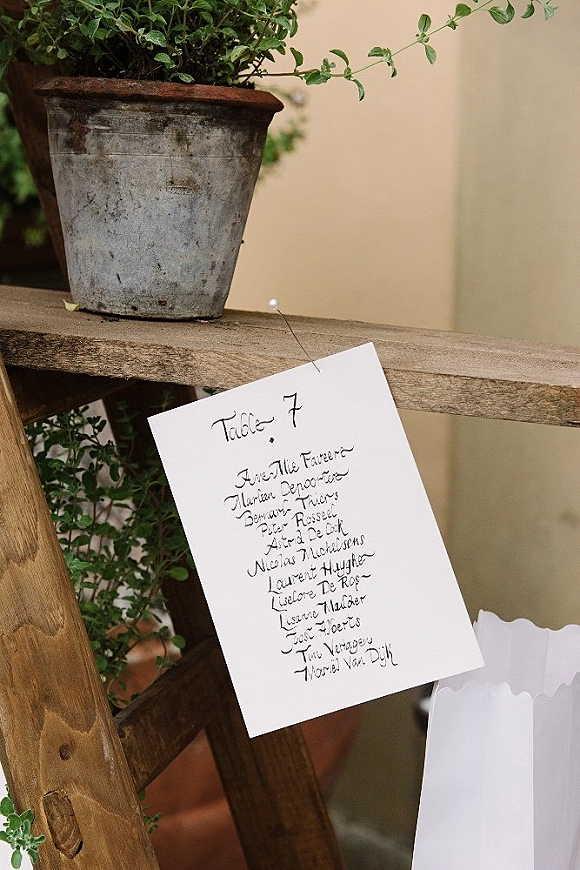 Table 7
Ann-Mie Faveere
Marleen Depoorter
Bernard Thiers
Peter Rosseel
Astrid De Cock
Nicolas Michielsens
Laurent Huyghe
Liselore De Rop
Lisanne Mulder
Joost Woerts
Tim Veragen
Mariël Van Dijk